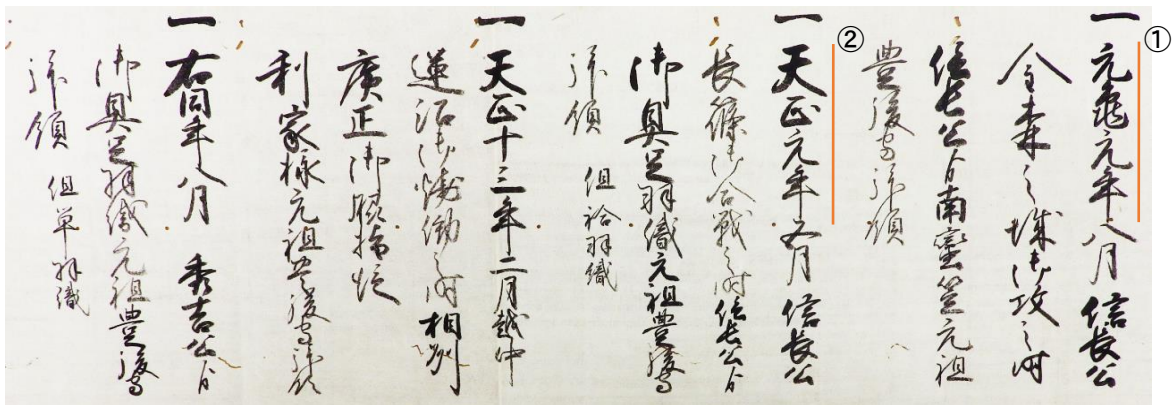 ①
一 元亀元年八月 信長公
金森之城御攻之時
信長公ゟ南蛮笠元祖
豊後守拝領
②
一 天正元年五月 信長公
長篠御合戦之時信長公ゟ
御具足羽織元祖豊後守
拝領 但袷羽織
一 天正十三年二月越中
蓮沼御焼働之時相州
廣正御脇指従
利家様元祖豊後守拝領
一 右同年八月 秀吉公ゟ
御具足羽織元祖豊後守
拝領 但単羽織